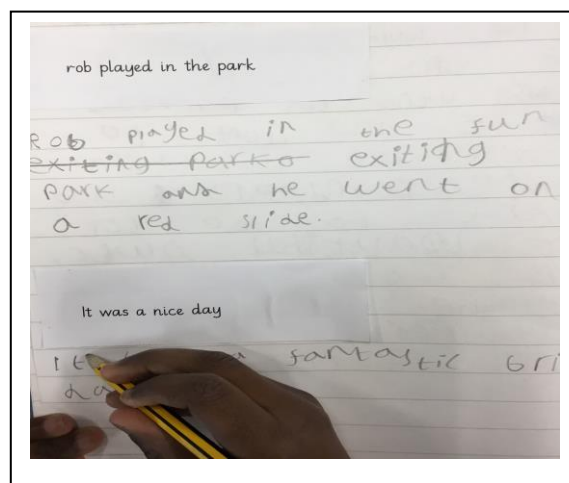 rob played in the park
Rob played in the fun
exiting park exiting
park and he went on
a red slide.
It was a nice day
It a fantastic bri